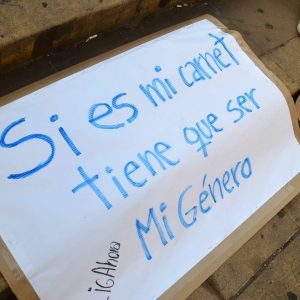 Si es mi carnet
tiene que ser
Mi Género
LIGAhora